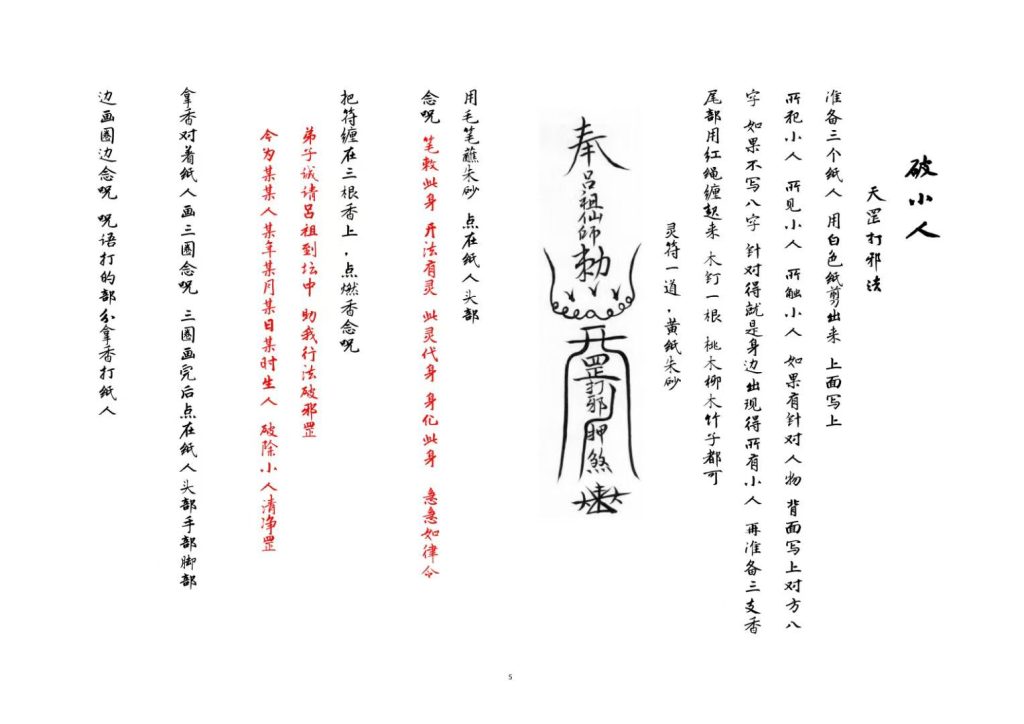 破小人
天罡打邪法
准备三个纸人 用白色纸剪出来 上面写上
所犯小人 所见小人 所触小人 如果有针对人物 背面写上对方八
字 如果不写八字 针对得就是身边出现得所有小人 再准备三支香
尾部用红绳缠起来 木钉一根 桃木柳木竹子都可
灵符一道，黄纸朱砂
奉吕祖仙師勅
罡打邪押煞
用毛笔蘸朱砂 点在纸人头部
念咒 笔敕此身 开法有灵 此灵代身 身化此身 急急如律令
把符缠在三根香上，点燃香念咒
弟子诚请吕祖到坛中 助我行法破邪罡
今为某某人某年某月某日某时生人 破除小人清净罡
拿香对着纸人画三圈念咒 三圈画完后点在纸人头部手部脚部
边画圈边念咒 咒语打的部分拿香打纸人
5